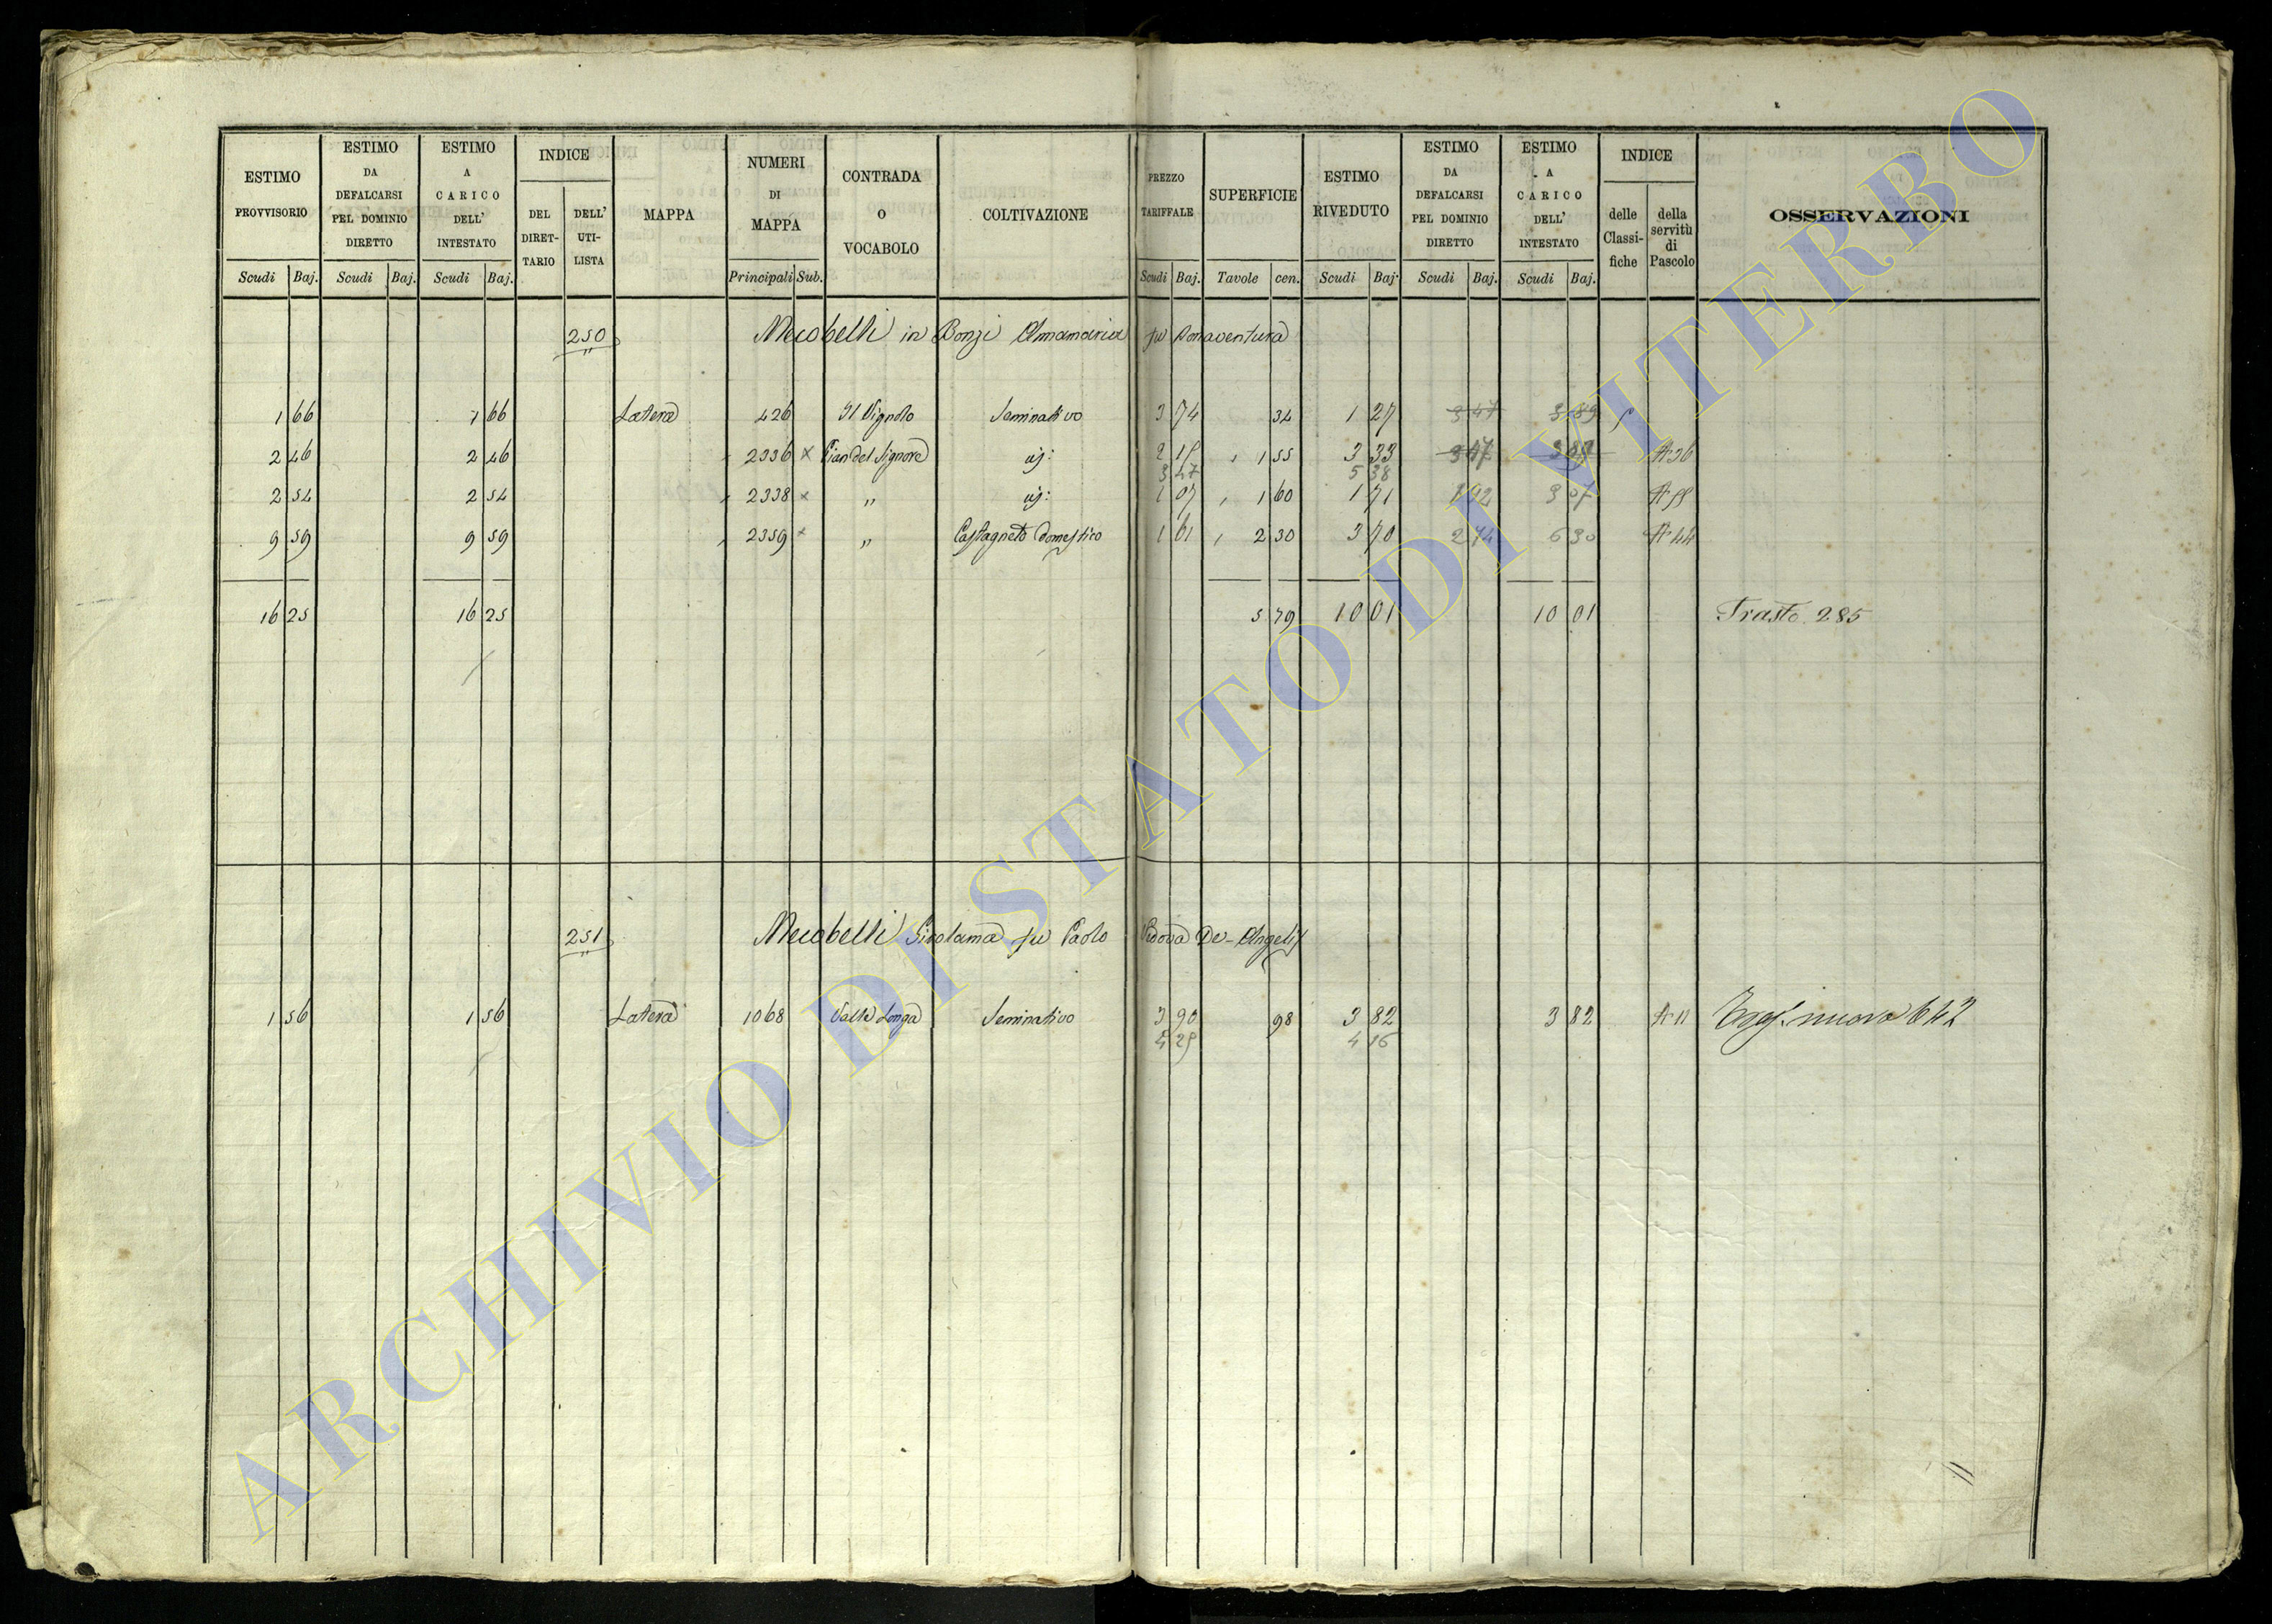 ESTIMO PROVVISORIO Scudi Baj.
ESTIMO DA DEFALCARSI PEL DOMINIO DIRETTO Scudi Baj.
ESTIMO A CARICO DELL' INTESTATO Scudi Baj.
INDICE DEL DIRET-TARIO DELL' UTI-LISTA
MAPPA
NUMERI DI MAPPA Principali Sub.
CONTRADA O VOCABOLO
COLTIVAZIONE
PREZZO TARIFFALE Scudi Baj.
SUPERFICIE Tavole cen.
ESTIMO RIVEDUTO Scudi Baj.
ESTIMO DA DEFALCARSI PEL DOMINIO DIRETTO Scudi Baj.
ESTIMO A CARICO DELL' INTESTATO Scudi Baj.
INDICE delle Classi-fiche della servitù di Pascolo
OSSERVAZIONI
250 Mecobelli in Bonzi Annamaria fu Bonaventura
1 66 1 66 Latera 426 Il Vignolo Seminativo 3 74 34 1 27 3 47 3 89
2 46 2 46 2336 x Pian del Signore id: 2 15 1 55 3 33 3 47
3 47 5 38
2 54 2 54 2338 x " id: 1 07 1 60 1 71 3 07
9 59 9 59 2359 x " Castagneto domestico 1 61 2 30 3 70 2 74 6 30 A 44
16 25 16 25 5 79 10 01 10 01 Trasto 285
251 Mecobelli Girolama fu Paolo Vedova De-Angelis
1 56 1 56 Latera 1068 Valle Longa Seminativo 3 90 98 3 82 3 82 A 11 nuova 642
4 25 4 16
ARCHIVIO DI STATO DI VITERBO